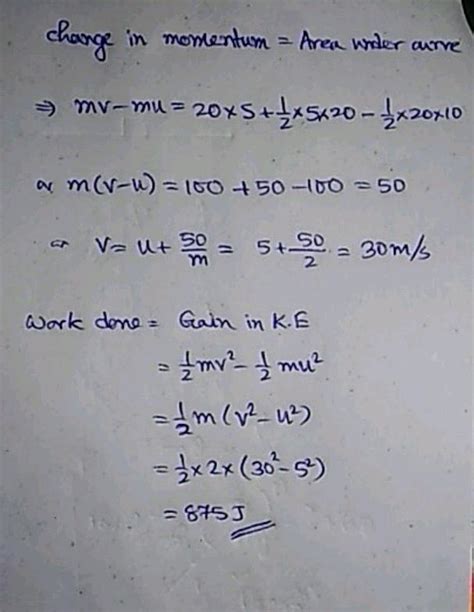 change in momentum = Area under curve
⇒ mv - mu = 20×5 + 1/2 ×5×20 - 1/2 ×20×10
or m(v-u) = 100 + 50 - 100 = 50
or v = u + 50/m = 5 + 50/2 = 30 m/s
Work done = Gain in K.E
= 1/2 mv² - 1/2 mu²
= 1/2 m (v² - u²)
= 1/2 × 2 × (30² - 5²)
= 875 J